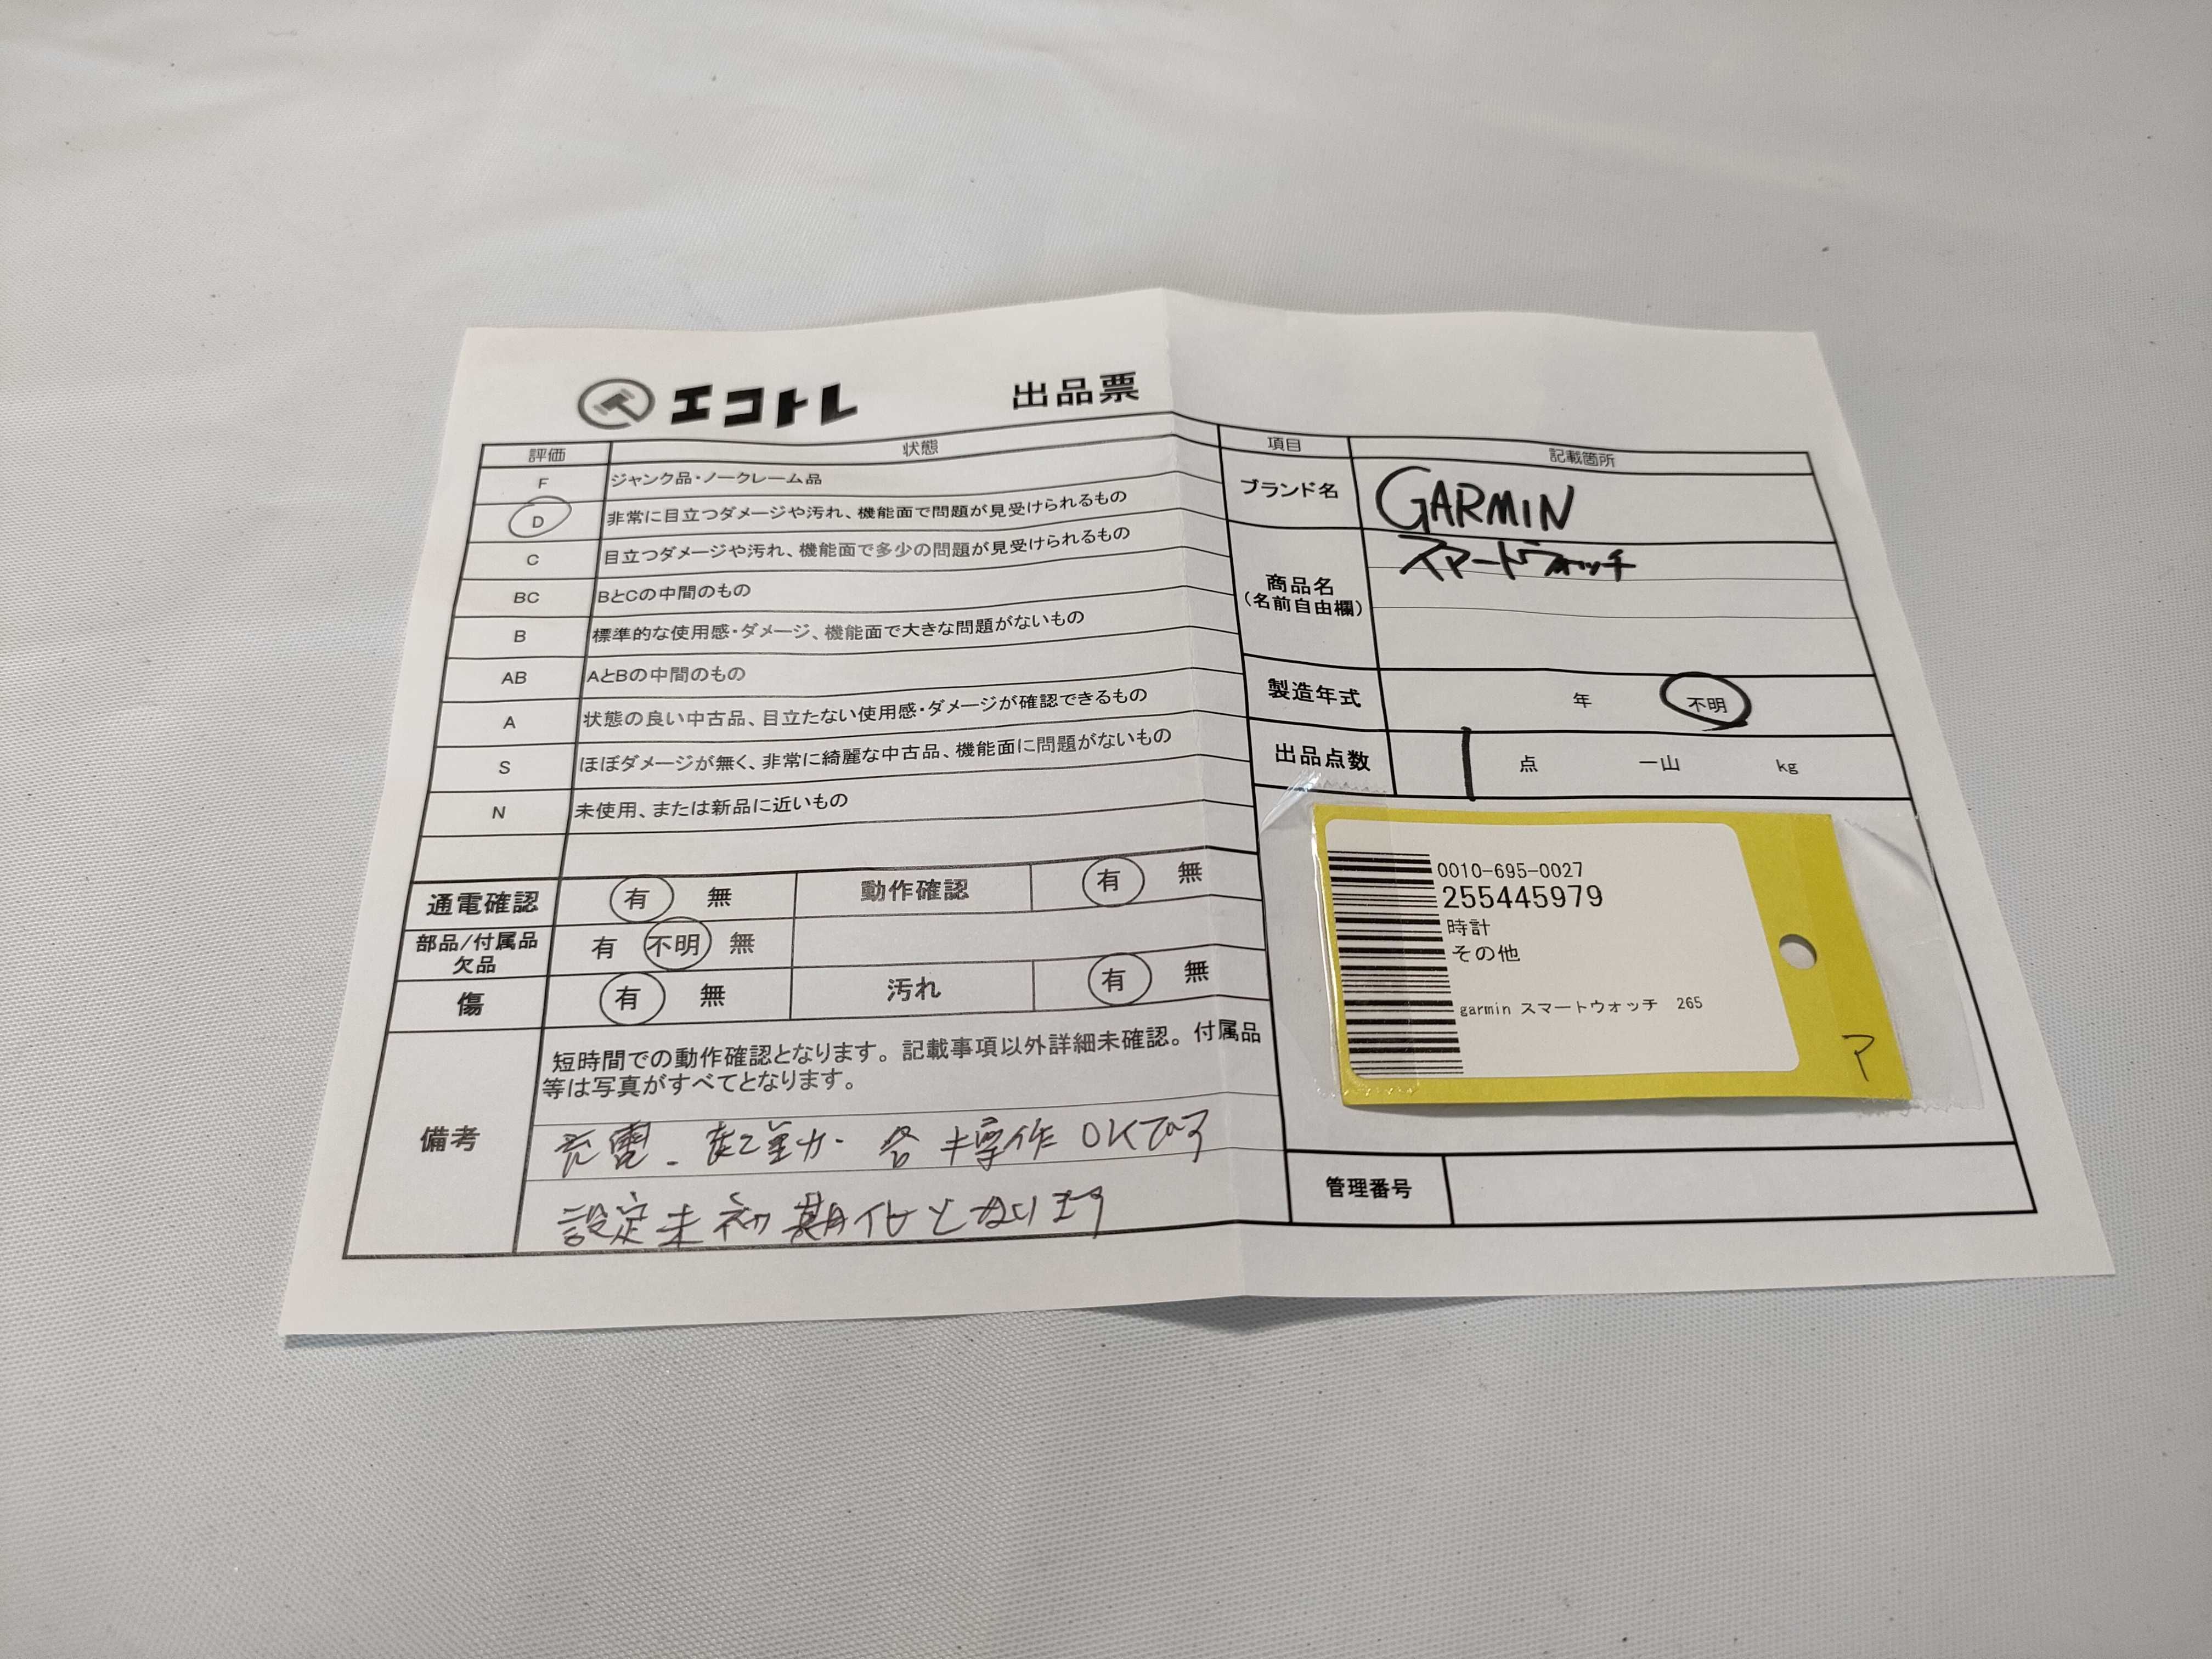 エコトレ 出品票
評価 状態
F ジャンク品・ノークレーム品
D 非常に目立つダメージや汚れ、機能面で問題が見受けられるもの
C 目立つダメージや汚れ、機能面で多少の問題が見受けられるもの
BC BとCの中間のもの
B 標準的な使用感・ダメージ、機能面で大きな問題がないもの
AB AとBの中間のもの
A 状態の良い中古品、目立たない使用感・ダメージが確認できるもの
S ほぼダメージが無く、非常に綺麗な中古品、機能面に問題がないもの
N 未使用、または新品に近いもの
通電確認 有 無 動作確認 有 無
部品/付属品
欠品 有 不明 無
傷 有 無 汚れ 有 無
備考
短時間での動作確認となります。記載事項以外詳細未確認。付属品
等は写真がすべてとなります。
充電. 起動. 各操作OKです
設定未初期化となります
項目 記載箇所
ブランド名 GARMIN
商品名
(名前自由欄)
スマートウォッチ
製造年式 年 不明
出品点数 1 点 一山 kg
0010-695-0027
255445979
時計
その他
garmin スマートウォッチ 265
ア
管理番号